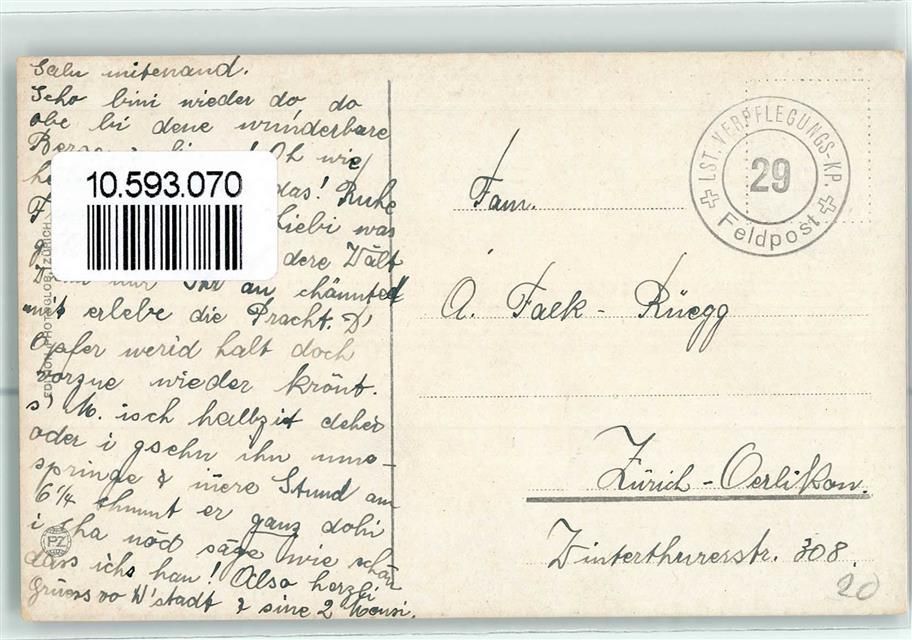 Salu mitenand.
Scho bini wieder do do
obe bi dene wunderbare
Oh wie
10.593.070
das! Ruhe
Liebi was
dere Wält
Ihr au chänted
mit erlebe die Pracht. D'
Opfer werid halt doch
vorzue wieder krönt.
s' M. isch halbzit dehei
oder i gsehn ihn ume-
springe & inere Stund am
6 1/4 chunnt er ganz dohi
i cha nöd säge wie schön
dass ichs han! Also herzli
Grüess vo W'stadt & sine 2 Mensi.
EDITION PHOTOGLOB ZÜRICH
PZ
LST. VERPFLEGUNGS-KP.
29
Feldpost
Fam.
A. Falk - Rüegg
Zürich - Oerlikon.
Winterthurerstr. 308.
20